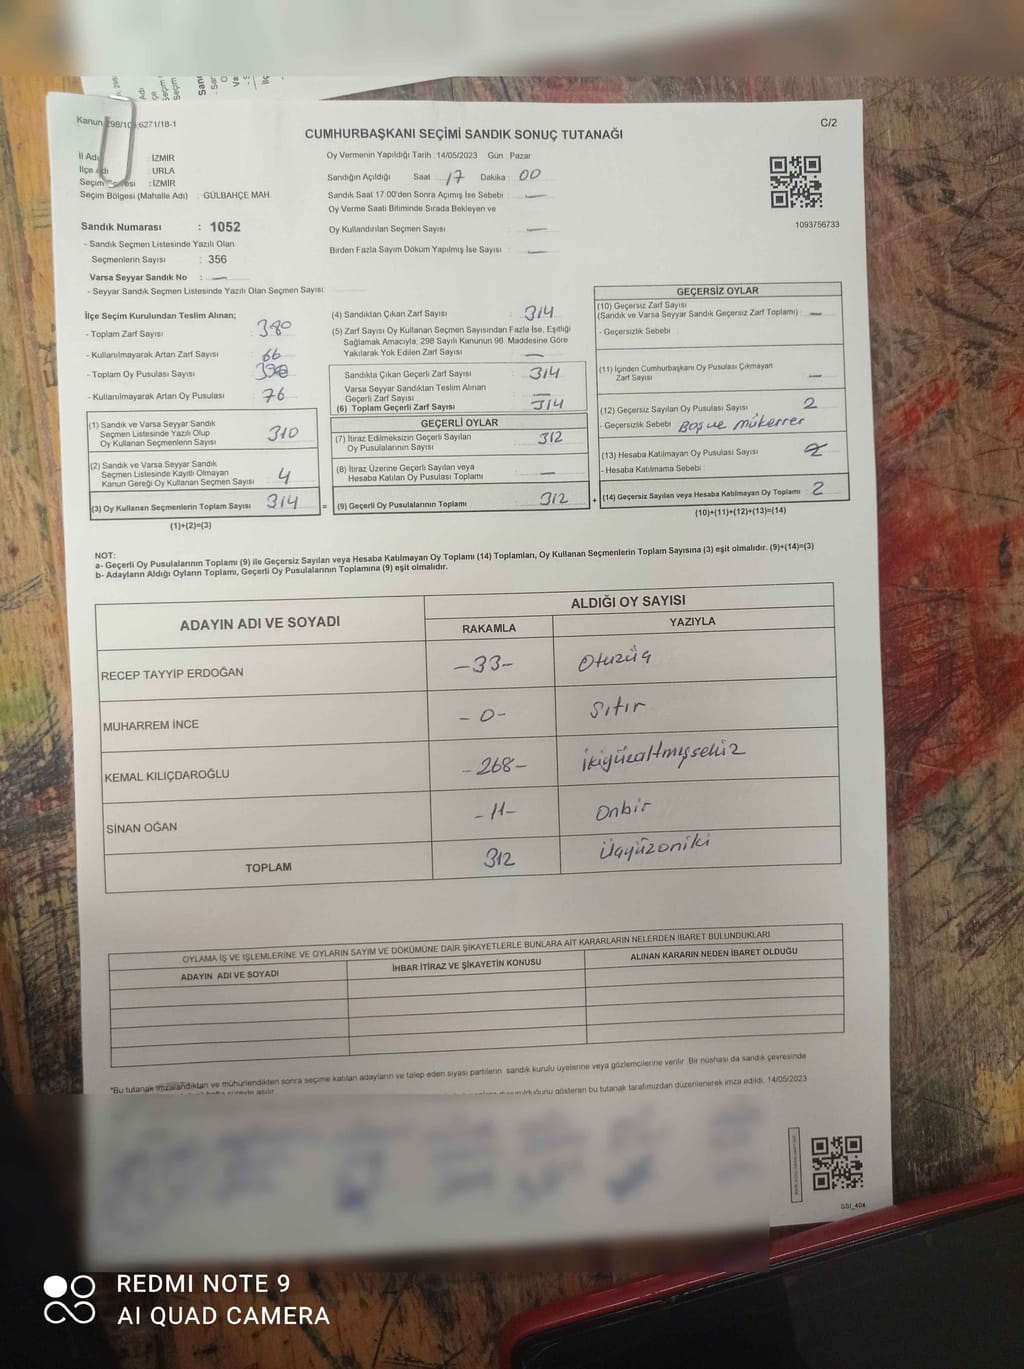 Kanun 298/10 6271/18-1
C/2
CUMHURBAŞKANI SEÇİMİ SANDIK SONUÇ TUTANAĞI
İl Adı İZMİR
İlçe Adı URLA
Seçim Çevresi : İZMİR
Seçim Bölgesi (Mahalle Adı) : GÜLBAHÇE MAH.
Oy Vermenin Yapıldığı Tarih : 14/05/2023 Gün : Pazar
Sandığın Açıldığı Saat 17 Dakika 00
Sandık Saat 17:00'den Sonra Açılmış İse Sebebi : —
Oy Verme Saati Bitiminde Sırada Bekleyen ve
Oy Kullandırılan Seçmen Sayısı : —
Birden Fazla Sayım Döküm Yapılmış İse Sayısı : —
1093756733
Sandık Numarası : 1052
- Sandık Seçmen Listesinde Yazılı Olan
Seçmenlerin Sayısı : 356
Varsa Seyyar Sandık No : —
- Seyyar Sandık Seçmen Listesinde Yazılı Olan Seçmen Sayısı:
İlçe Seçim Kurulundan Teslim Alınan;
- Toplam Zarf Sayısı : 380
- Kullanılmayarak Artan Zarf Sayısı : 66
- Toplam Oy Pusulası Sayısı :
- Kullanılmayarak Artan Oy Pusulası : 76
(1) Sandık ve Varsa Seyyar Sandık
Seçmen Listesinde Yazılı Olup
Oy Kullanan Seçmenlerin Sayısı : 310
(2) Sandık ve Varsa Seyyar Sandık
Seçmen Listesinde Kayıtlı Olmayan
Kanun Gereği Oy Kullanan Seçmen Sayısı : 4
(3) Oy Kullanan Seçmenlerin Toplam Sayısı : 314
(1)+(2)=(3)
=
(4) Sandıktan Çıkan Zarf Sayısı : 314
(5) Zarf Sayısı Oy Kullanan Seçmen Sayısından Fazla İse, Eşitliği
Sağlamak Amacıyla, 298 Sayılı Kanunun 98. Maddesine Göre
Yakılarak Yok Edilen Zarf Sayısı : —
Sandıkta Çıkan Geçerli Zarf Sayısı : 314
Varsa Seyyar Sandıktan Teslim Alınan
Geçerli Zarf Sayısı : —
(6) Toplam Geçerli Zarf Sayısı : 314
GEÇERLİ OYLAR
(7) İtiraz Edilmeksizin Geçerli Sayılan
Oy Pusulalarının Sayısı : 312
(8) İtiraz Üzerine Geçerli Sayılan veya
Hesaba Katılan Oy Pusulası Toplamı : —
(9) Geçerli Oy Pusulalarının Toplamı : 312
+
GEÇERSİZ OYLAR
(10) Geçersiz Zarf Sayısı
(Sandık ve Varsa Seyyar Sandık Geçersiz Zarf Toplamı) : —
- Geçersizlik Sebebi :
(11) İçinden Cumhurbaşkanı Oy Pusulası Çıkmayan
Zarf Sayısı : —
(12) Geçersiz Sayılan Oy Pusulası Sayısı : 2
- Geçersizlik Sebebi : Boş ve mükerrer
(13) Hesaba Katılmayan Oy Pusulası Sayısı :
- Hesaba Katılmama Sebebi :
(14) Geçersiz Sayılan veya Hesaba Katılmayan Oy Toplamı : 2
(10)+(11)+(12)+(13)=(14)
NOT:
a- Geçerli Oy Pusulalarının Toplamı (9) ile Geçersiz Sayılan veya Hesaba Katılmayan Oy Toplamı (14) Toplamları, Oy Kullanan Seçmenlerin Toplam Sayısına (3) eşit olmalıdır. (9)+(14)=(3)
b- Adayların Aldığı Oyların Toplamı, Geçerli Oy Pusulalarının Toplamına (9) eşit olmalıdır.
ADAYIN ADI VE SOYADI
ALDIĞI OY SAYISI
RAKAMLA YAZIYLA
RECEP TAYYİP ERDOĞAN -33- Otuzüç
MUHARREM İNCE -0- Sıfır
KEMAL KILIÇDAROĞLU -268- ikiyüzaltmışsekiz
SİNAN OĞAN -11- Onbir
TOPLAM 312 Üçyüzoniki
OYLAMA İŞ VE İŞLEMLERİNE VE OYLARIN SAYIM VE DÖKÜMÜNE DAİR ŞİKAYETLERLE BUNLARA AİT KARARLARIN NELERDEN İBARET BULUNDUKLARI
ADAYIN ADI VE SOYADI İHBAR İTİRAZ VE ŞİKAYETİN KONUSU ALINAN KARARIN NEDEN İBARET OLDUĞU
*Bu tutanak imzalandıktan ve mühürlendikten sonra seçime katılan adayların ve talep eden siyasi partilerin sandık kurulu üyelerine veya gözlemcilerine verilir. Bir nüshası da sandık çevresinde
gösteren bu tutanak tarafımızdan düzenlenerek imza edildi. 14/05/2023
SSI_404
REDMI NOTE 9
AI QUAD CAMERA